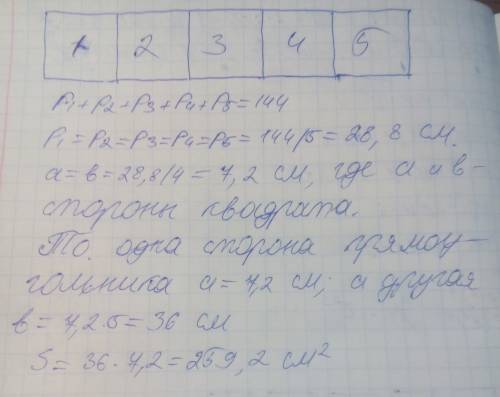 1 2 3 4 5
P₁+P₂+P₃+P₄+P₅=144
P₁=P₂=P₃=P₄=P₅=144/5=28,8 см.
а=в=28,8/4=7,2 см, где а и в-
стороны квадрата.
То. одна сторона прямоу-
гольника а=7,2 см; а другая
в=7,2·5=36 см
S=36·7,2=259,2 см²